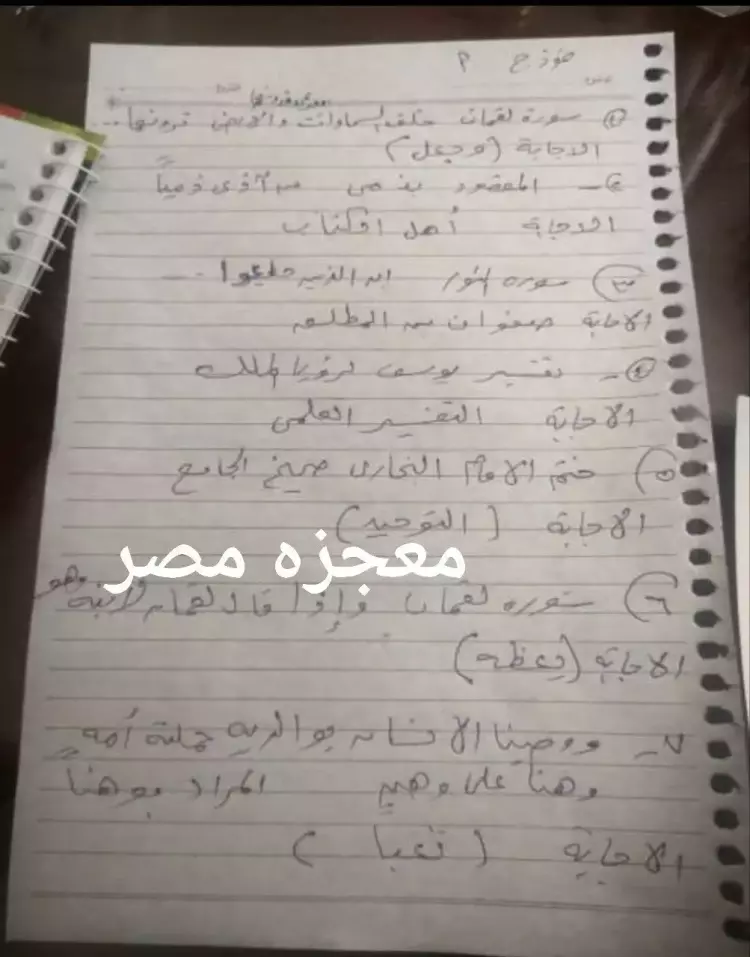 نموذج م
① سورة لقمان خلق السماوات والارض ترونها ...
الاجابة (وجعل)
٢- المقصود بنص من آذى ذمياً
الاجابة أهل الكتاب
٣) سوره النور ان الذين ...
الاجابة صفوان بن المطلعه
٤- تفسير يوسف لرؤيا الملك
الاجابة التفسير العلمى
٥) ختم الامام البخارى صحيح الجامع
الاجابة (التوحيد)
معجزه مصر
٦) سوره لقمان وإذا قال لقمان لابنه وهو
الاجابة (يعظه)
٧- ووصينا الانسان بوالديه حملته أمه
وهنا على وهن المراد بوهناً
الاجابة (تعبا)